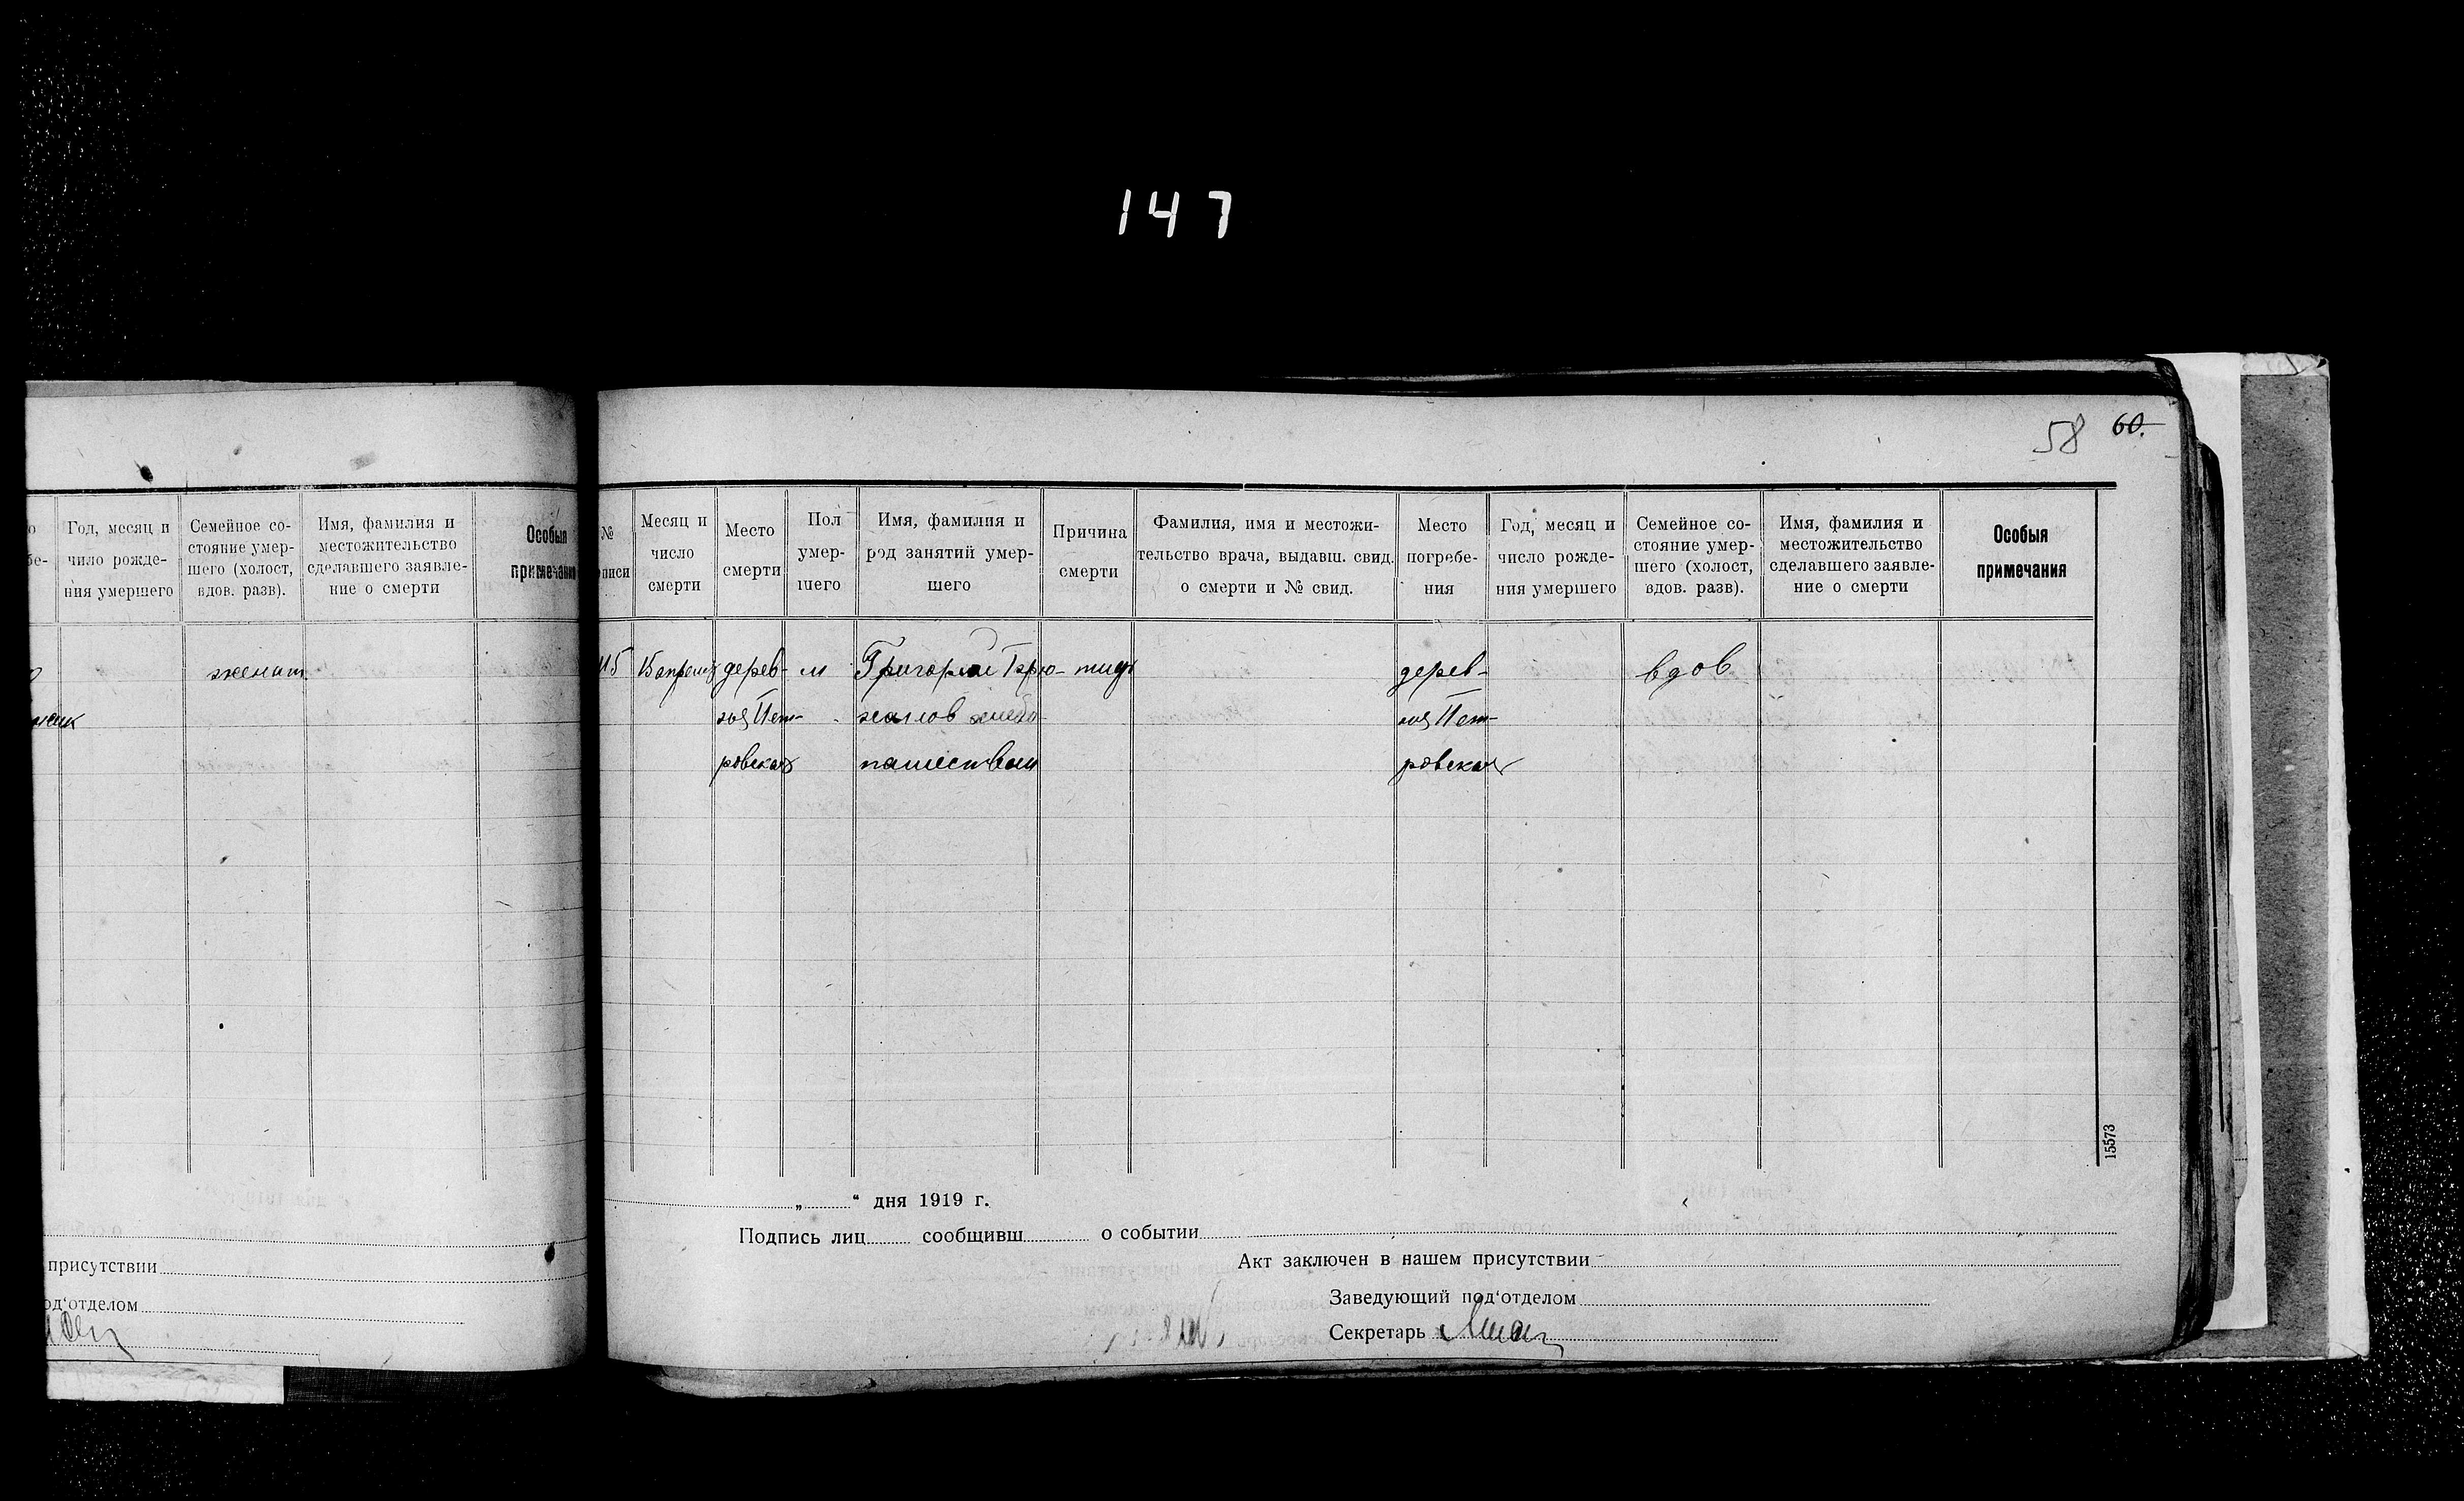 147
58 60.
Год, месяц и чило рожде-ния умершего
Семейное со-стояние умер-шего (холост, вдов. разв).
Имя, фамилия и местожительство сделавшего заявле-ние о смерти
Особыя примечания
женат
присутствии
од'отделом
№ писи
Месяц и число смерти
Место смерти
Пол умер-шего
Имя, фамилия и род занятий умер-шего
Причина смерти
Фамилия, имя и местожи-тельство врача, выдавш. свид. о смерти и № свид.
Место погребе-ния
Год, месяц и число рожде-ния умершего
Семейное со-стояние умер-шего (холост, вдов. разв).
Имя, фамилия и местожительство сделавшего заявле-ние о смерти
Особыя примечания
115 15 апреля дерев- м Григорий тиф дерев- вдов
ня Пет- ня Пет-
ровская пашеством ровская
15573
„ “ дня 1919 г.
Подпись лиц сообщивш о событии
Акт заключен в нашем присутствии
Заведующий под'отделом
Секретарь